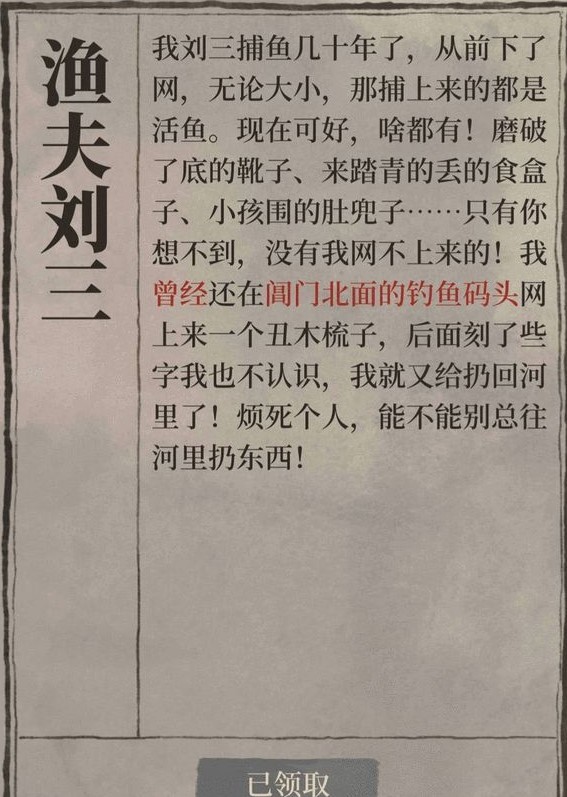 渔夫刘三
我刘三捕鱼几十年了，从前下了
网，无论大小，那捕上来的都是
活鱼。现在可好，啥都有！磨破
了底的靴子、来踏青的丢的食盒
子、小孩围的肚兜子……只有你
想不到，没有我网不上来的！我
曾经还在阊门北面的钓鱼码头网
上来一个丑木梳子，后面刻了些
字我也不认识，我就又给扔回河
里了！烦死个人，能不能别总往
河里扔东西！
已领取